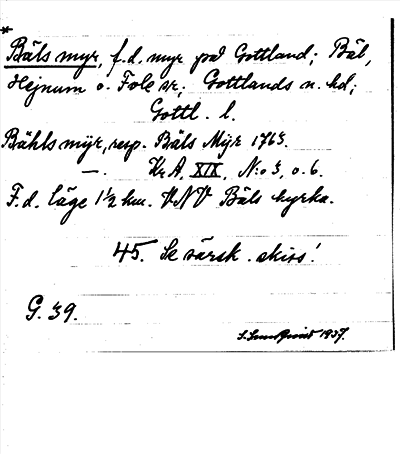 *
Bäls myr, f.d. myr på Gottland; Bäl,
Hejnum o. Fole sr; Gottlands n. hd;
Gottl. l.
Bähls mÿr, resp. Bäls Mÿr 1763.
—. Kr A, XIX, N:o 3, o. 6.
F.d. läge 1½ km. VNV Bäls kyrka.
45. Se särsk. skiss!
G. 39.
1937.